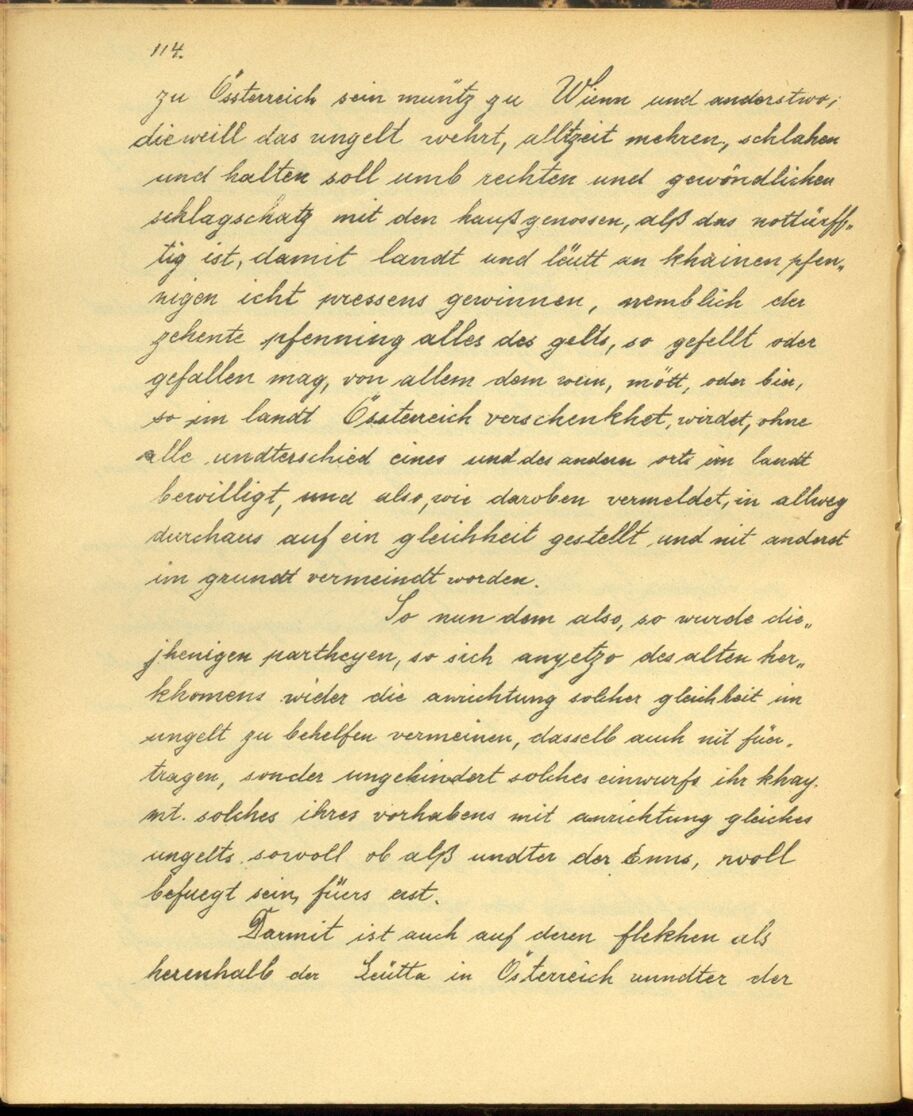 114.
zu Össterreich sein müntz zu Wienn und anderstwo,
dieweill das ungelt wehrt, alltzeit mehren, schlahen
und halten soll umb rechten und gewöndlichen
schlagschatz mit den haußgenossen, alß das nottürff„
tig ist, damit landt und leütt an khainen pfen„
nigen icht pressens gewinnen, nemblich der
zehente pfenning alles des gelts, so gefellt oder
gefallen mag, von allem dem wein, mött, oder bier,
so im landt Össterreich verschenkhet, wirdet, ohne
alle undterschied eines und des andern orts im landt
bewilligt, und also, wie daroben vermeldet, in allweg
durchaus auf ein gleichheit gestellt und nit anderst
im grundt vermeindt worden.
So nun dem also, so wurde die„
jhenigen partheyen, so sich anyetzo des alten her„
khomens wider die anrichtung solcher gleichheit im
ungelt zu behelfen vermeinen, dasselb auch nit für„
tragen, sonder ungehindert solches einwurfs ihr khay.
mt. solches ihres vorhabens mit anrichtung gleiches
ungelts sowoll ob alß undter der Enns, woll
befuegt sein, fürs erst.
Darmit ist auch auf deren flekhen als
herenhalb der Leütta in Österreich unndter der